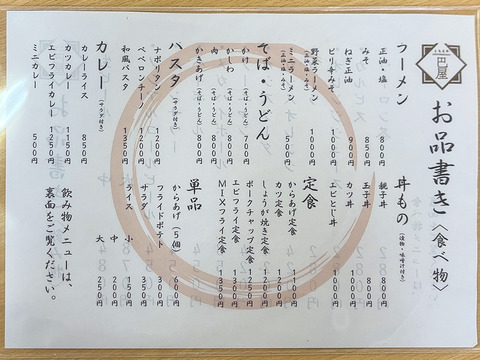 巴屋
お品書き〈食べ物〉
ラーメン
正油・塩 800円
みそ 850円
ねぎ正油 900円
ピリ辛みそ 1000円
野菜ラーメン 1000円
(正油・塩・みそ)
ミニラーメン 500円
(正油・塩・みそ)
そば・うどん
かけ(そば・うどん) 700円
かしわ(そば・うどん) 800円
肉(そば・うどん) 800円
かきあげ(そば・うどん) 800円
パスタ(サラダ付き)
ナポリタン 1200円
ペペロンチーノ 1200円
和風パスタ 1350円
カレー(サラダ付き)
カレーライス 850円
カツカレー 1250円
エビフライカレー 1150円
ミニカレー 500円
丼もの(漬物・味噌汁付き)
親子丼 800円
玉子丼 800円
カツ丼 1000円
エビとじ丼 1000円
定食
からあげ定食 1100円
カツ定食 1200円
しょうが焼き定食
ポークチャップ定食
エビフライ定食 1300円
MIXフライ定食 1350円
単品
からあげ(5個) 600円
フライドポテト 350円
サラダ 300円
ライス 小 150円
中 200円
大 250円
飲み物メニューは、
裏面をご覧ください。